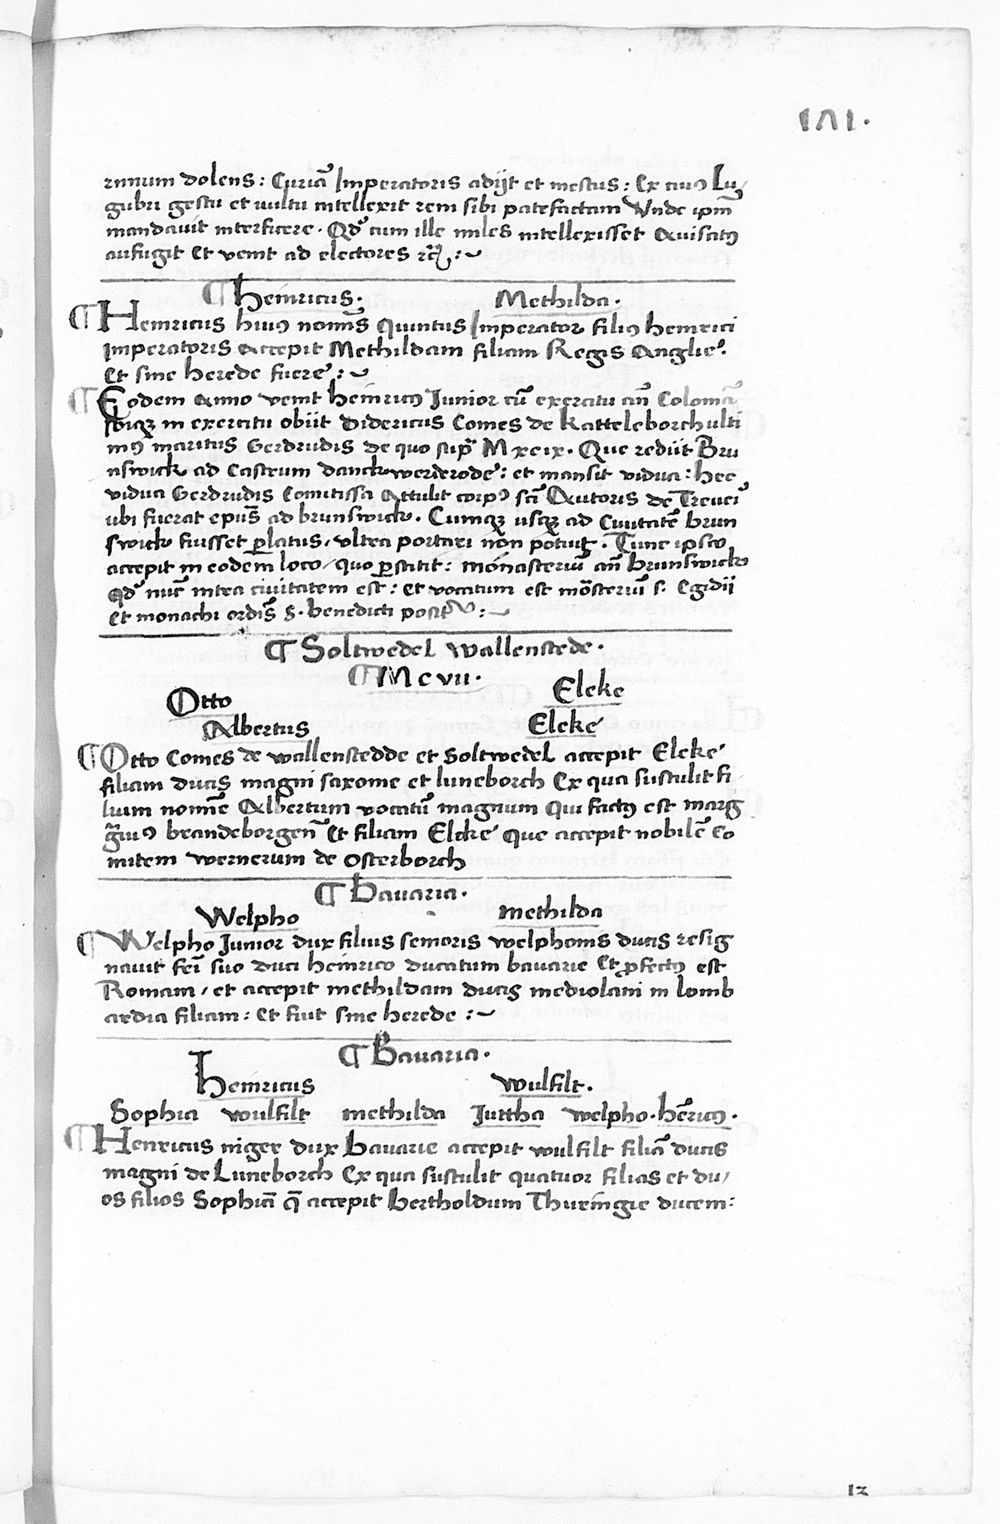 rnnum dolens: Curiā Imperatoris adijt et mestus: Ex cuiꝰ Lu/
gubri gestu et uultu intellexit rem sibi patefactam Vnde ipm̄
mandauit interficere. Qd̄ cum ille miles intellexisset Auisatꝯ
aufugit Et venit ad electores ⁊c̄:~
¶ Heinricus. Methilda.
¶ Heinricus huiꝰ nomīs Quintus Imperator filiꝰ heinrici
Imperatoris Accepit Methildam filiam Regis Anglie.
Et sine herede fuere:~
¶ Eodem Anno venit heinricꝰ Junior cū exercitu an̄ Colomā
ibiqꝫ in exercitu obiit Didericus Comes de Katteleborch ulti
mꝰ maritus Gerdrudis de quo sup̄ Mxcix. Que rediit Bru
nswick ad Castrum danckwerderode: et mansit vidua: hec
vidua Gerdrudis Comitissa Attulit corpꝰ sc̄i Autoris de Treueī
ubi fuerat ep̄us ad brunswick. Cumqꝫ usqꝫ ad Ciuitatē brun
swick fuisset p̱latus, vltra portari non potuit. Tunc ipsco
accepit in eodem loco, quo p̱stitit: monasteriū an̄ brunswick
Qd̄ nūc intra ciuitatem est: et vocatum est mōsteriū s. Egidii
Et monachi ordīs S. benedicti positi:~
¶ Soltwedel Wallenstede.
¶ Mcvii.
Otto Elcke
Albertus Elcke
¶ Otto Comes de Wallenstedde et Soltwedel accepit Elcke
filiam ducis magni saxonie et luneborch Ex qua sustulit fi
lium nomīe Albertum vocatū magnum Qui factꝯ est marg
g̃uiꝰ brandeborgen̄ Et filiam Elcke que accepit nobilē Co
mitem wernerum de Osterborch
¶ Bauaria.
Welpho methilda
¶ Welpho Junior dux filius senioris welphonis ducis resig
nauit fr̄i suo duci heinrico ducatum bauarie Et p̄fectꝯ est
Romam, et accepit methildam ducis mediolani in lomb
ardia filiam: Et fuit sine herede:~
¶ Bauaria.
Heinricus Wulfilt.
Sophia wulfilt methilda Juttha welpho. hēricꝯ.
¶ Henricus niger dux Bauarie accepit wulfilt filiā ducis
magni de Luneborch Ex qua sustulit quatuor filias et du/
os filios Sophiā q̄ accepit Bertholdum Thuringie ducem: